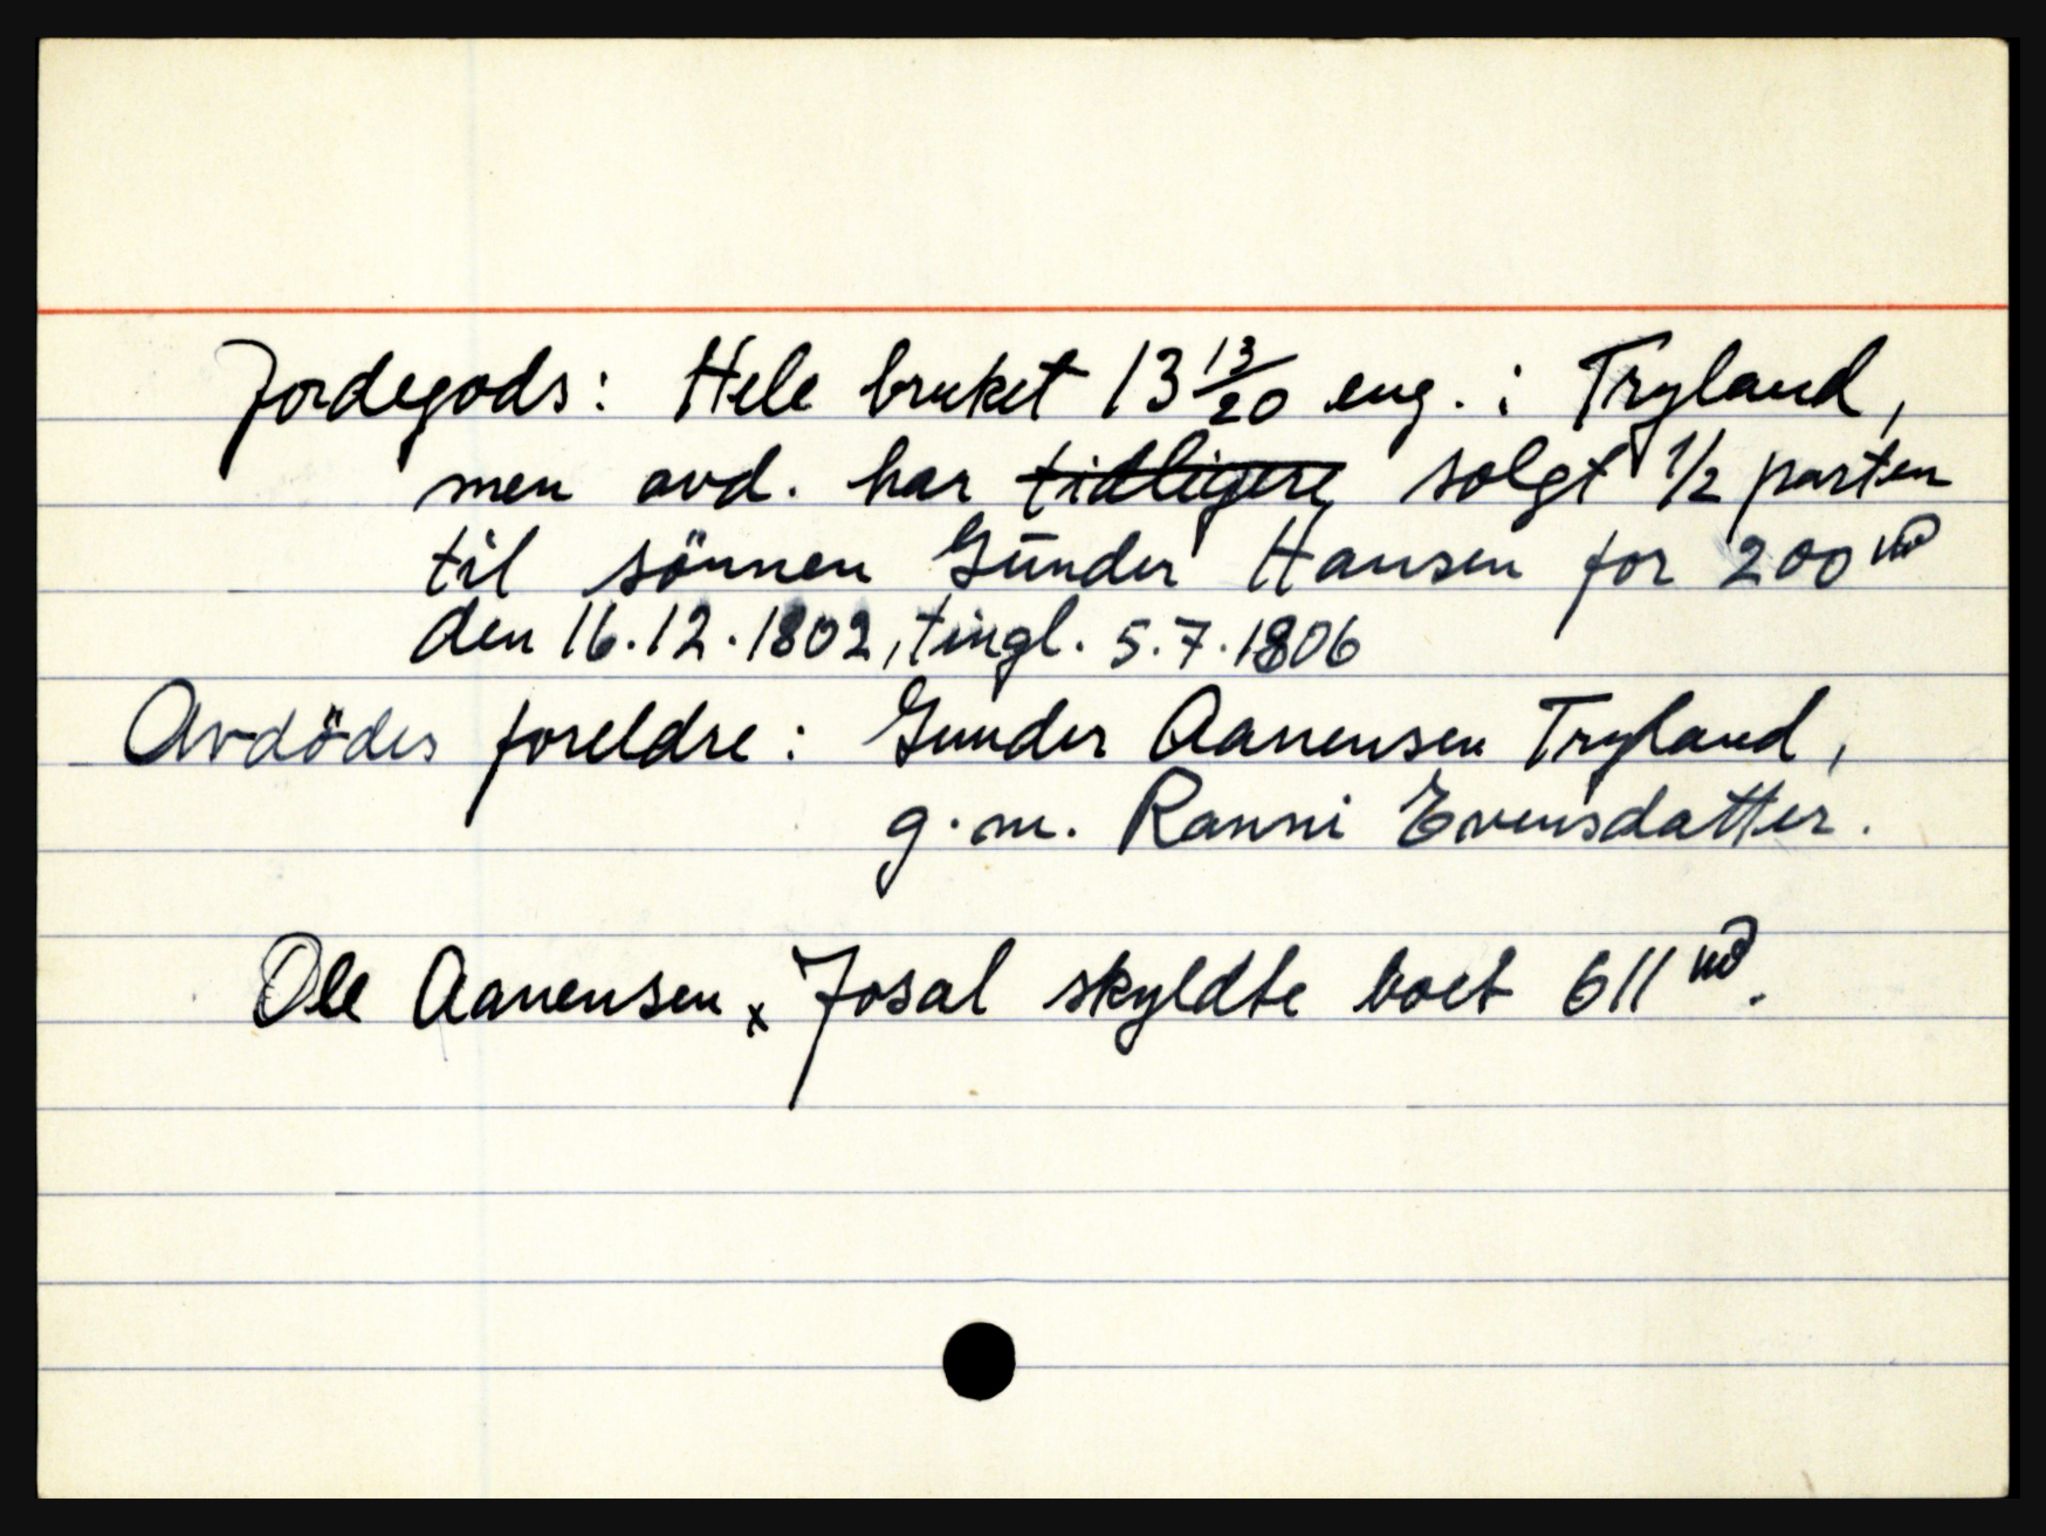 Jordegods: Hele bruket 13 13/20 eng. i Tryland,
men avd. har ~~tidligere~~ solgt 1/2 parten
til sönnen Gunder Hansen for 200 rd
den 16.12.1802, tingl. 5.7.1806
Avdödes foreldre: Gunder Aanensen Tryland,
g.m. Ranni Evensdatter.
Ole Aanensen x Josal skyldte boet 611 rd.